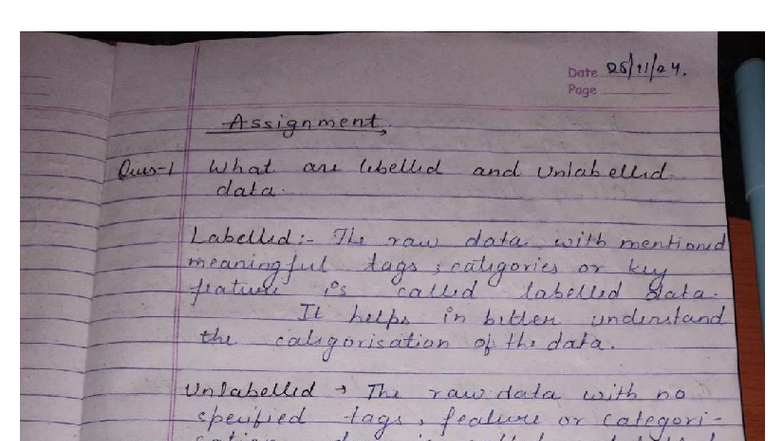 Date 25/11/24.
Page
Assignment.
Ques-1 What are labelled and Unlabelled
data.
Labelled:- The raw data with mentioned
meaningful tags, categories or key
feature is called labelled data.
It helps in better understand
the categorisation of the data.
Unlabelled → The raw data with no
specified tags, feature or categori-